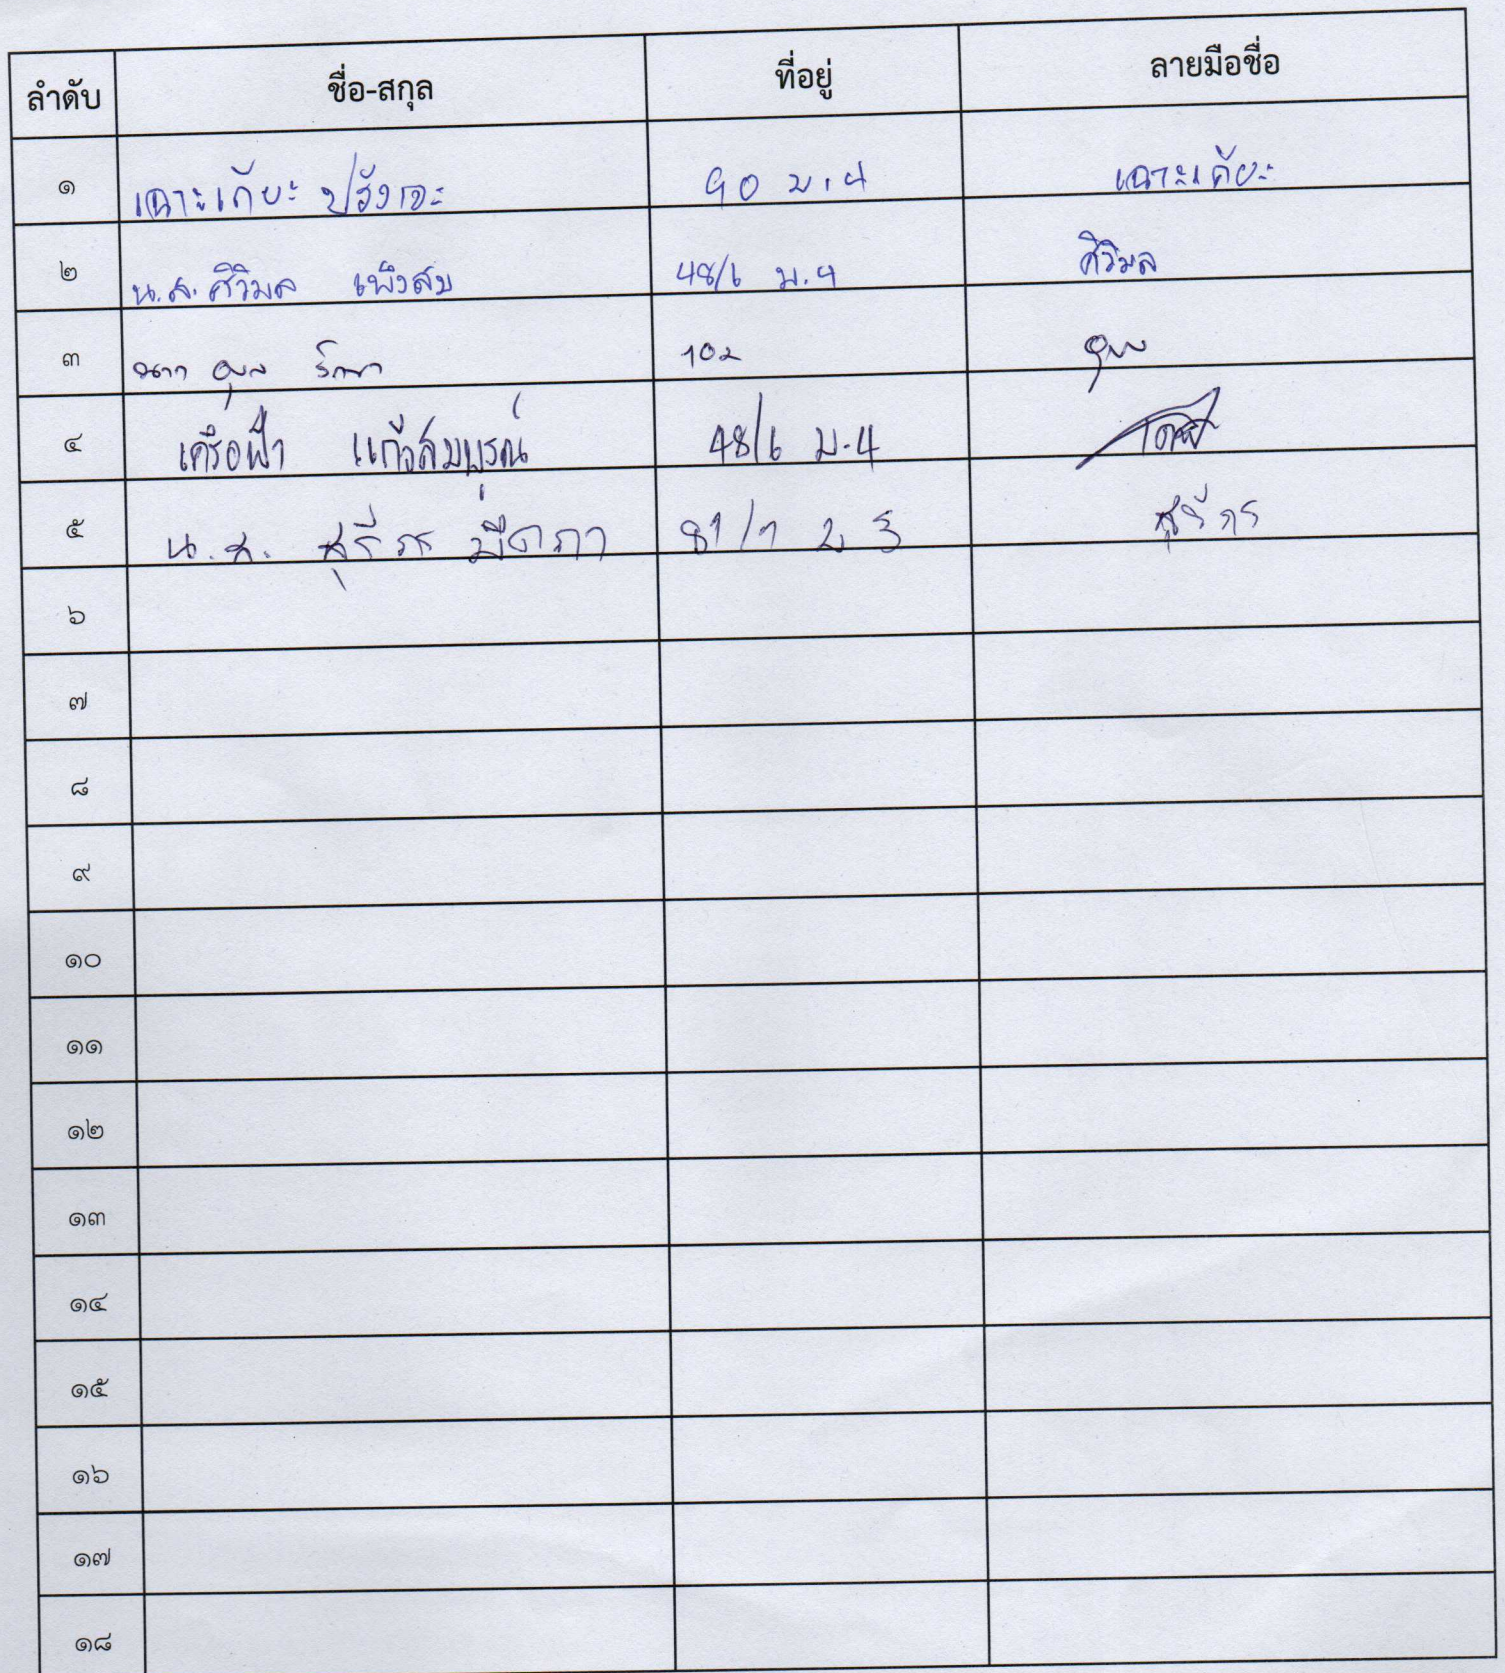 ลำดับ ชื่อ-สกุล ที่อยู่ ลายมือชื่อ
๑ เจาะเก๊ยะ ปรังเจะ 90 ม.4 เจาะเก๊ยะ
๒ น.ส. ศิริวิมล เพ็งสม 48/6 ม.4 ศิริวิมล
๓ 102
๔ เครือฟ้า แก้วสมบูรณ์ 48/6 ม.4
๕ น.ส. สุรีภร มีดภา 81/1 ม 3 สุรีภร
๖
๗
๘
๙
๑๐
๑๑
๑๒
๑๓
๑๔
๑๕
๑๖
๑๗
๑๘